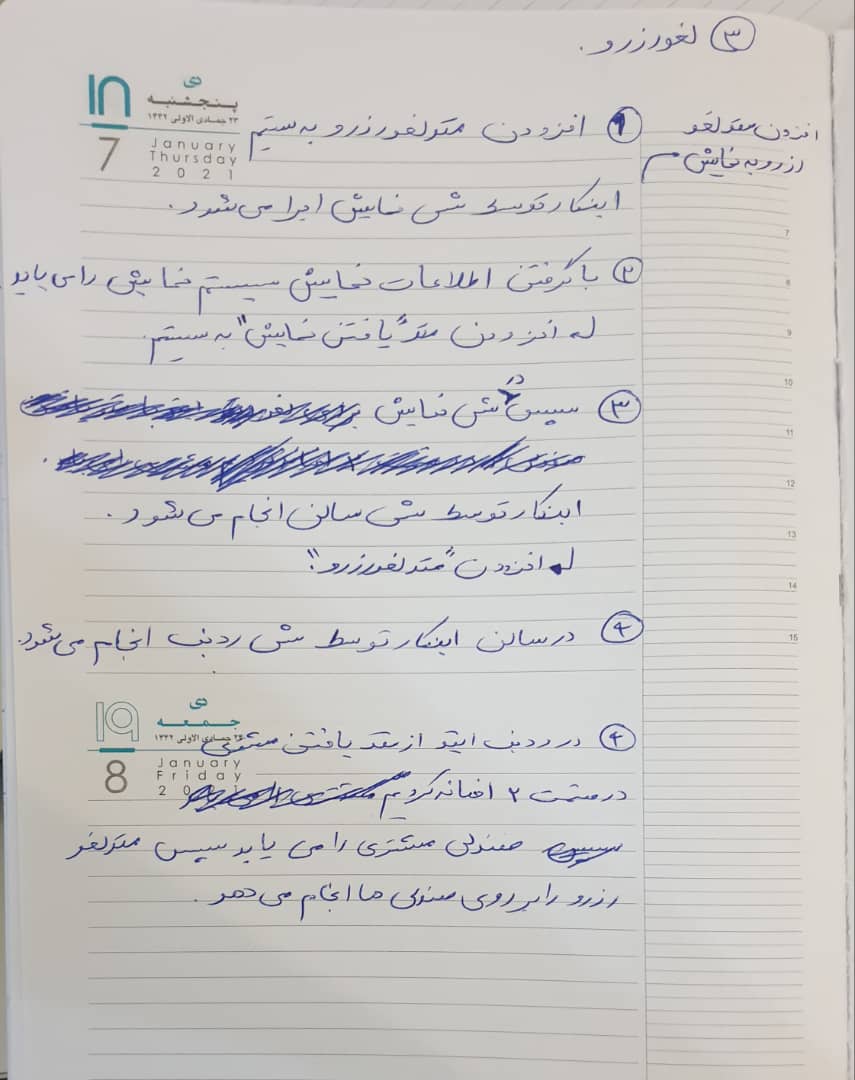 ۳ لغو رزرو.
افزودن متد لغو
رزرو به نمایش
۱۸
دی
پنجشنبه
۲۳ جمادی الاولی ۱۴۴۲
7
January
Thursday
2021
۱ افزودن متد لغو رزرو به سیستم
اینکار توسط شی نمایش اجرا می شود.
۲ با گرفتن اطلاعات نمایش سیستم نمایش را می یابد
افزودن متد "یافتن نمایش" به سیستم.
۳ سپس در شی نمایش
اینکار توسط شی سالن انجام می شود.
افزودن "متد لغو رزرو".
۴ در سالن اینکار توسط شی ردیف انجام می شود.
۱۹
دی
جمعه
جمادی الاولی ۱۴۴۲
8
January
Friday
۴ در ردیف از متد یافتن
در قسمت ۲ اضافه کردیم
صندلی مشتری را می یابد سپس متد لغو
رزرو را بر روی صندلی ها انجام می دهد.
7
8
9
10
11
12
13
14
15